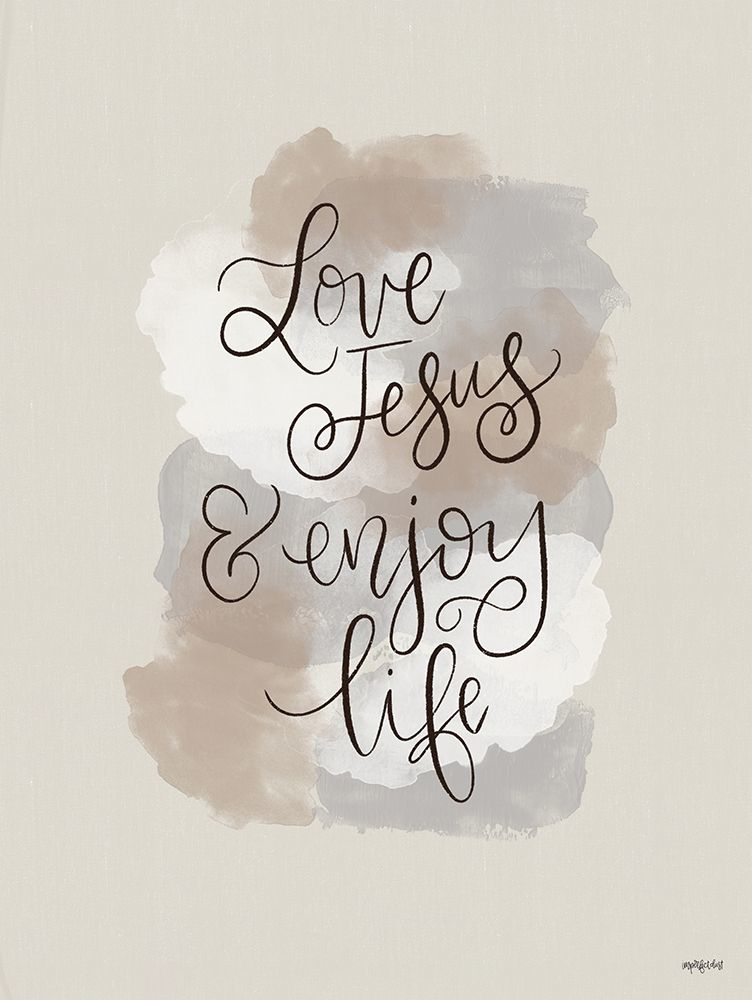 Love
Jesus
& enjoy
life
imperfect dust